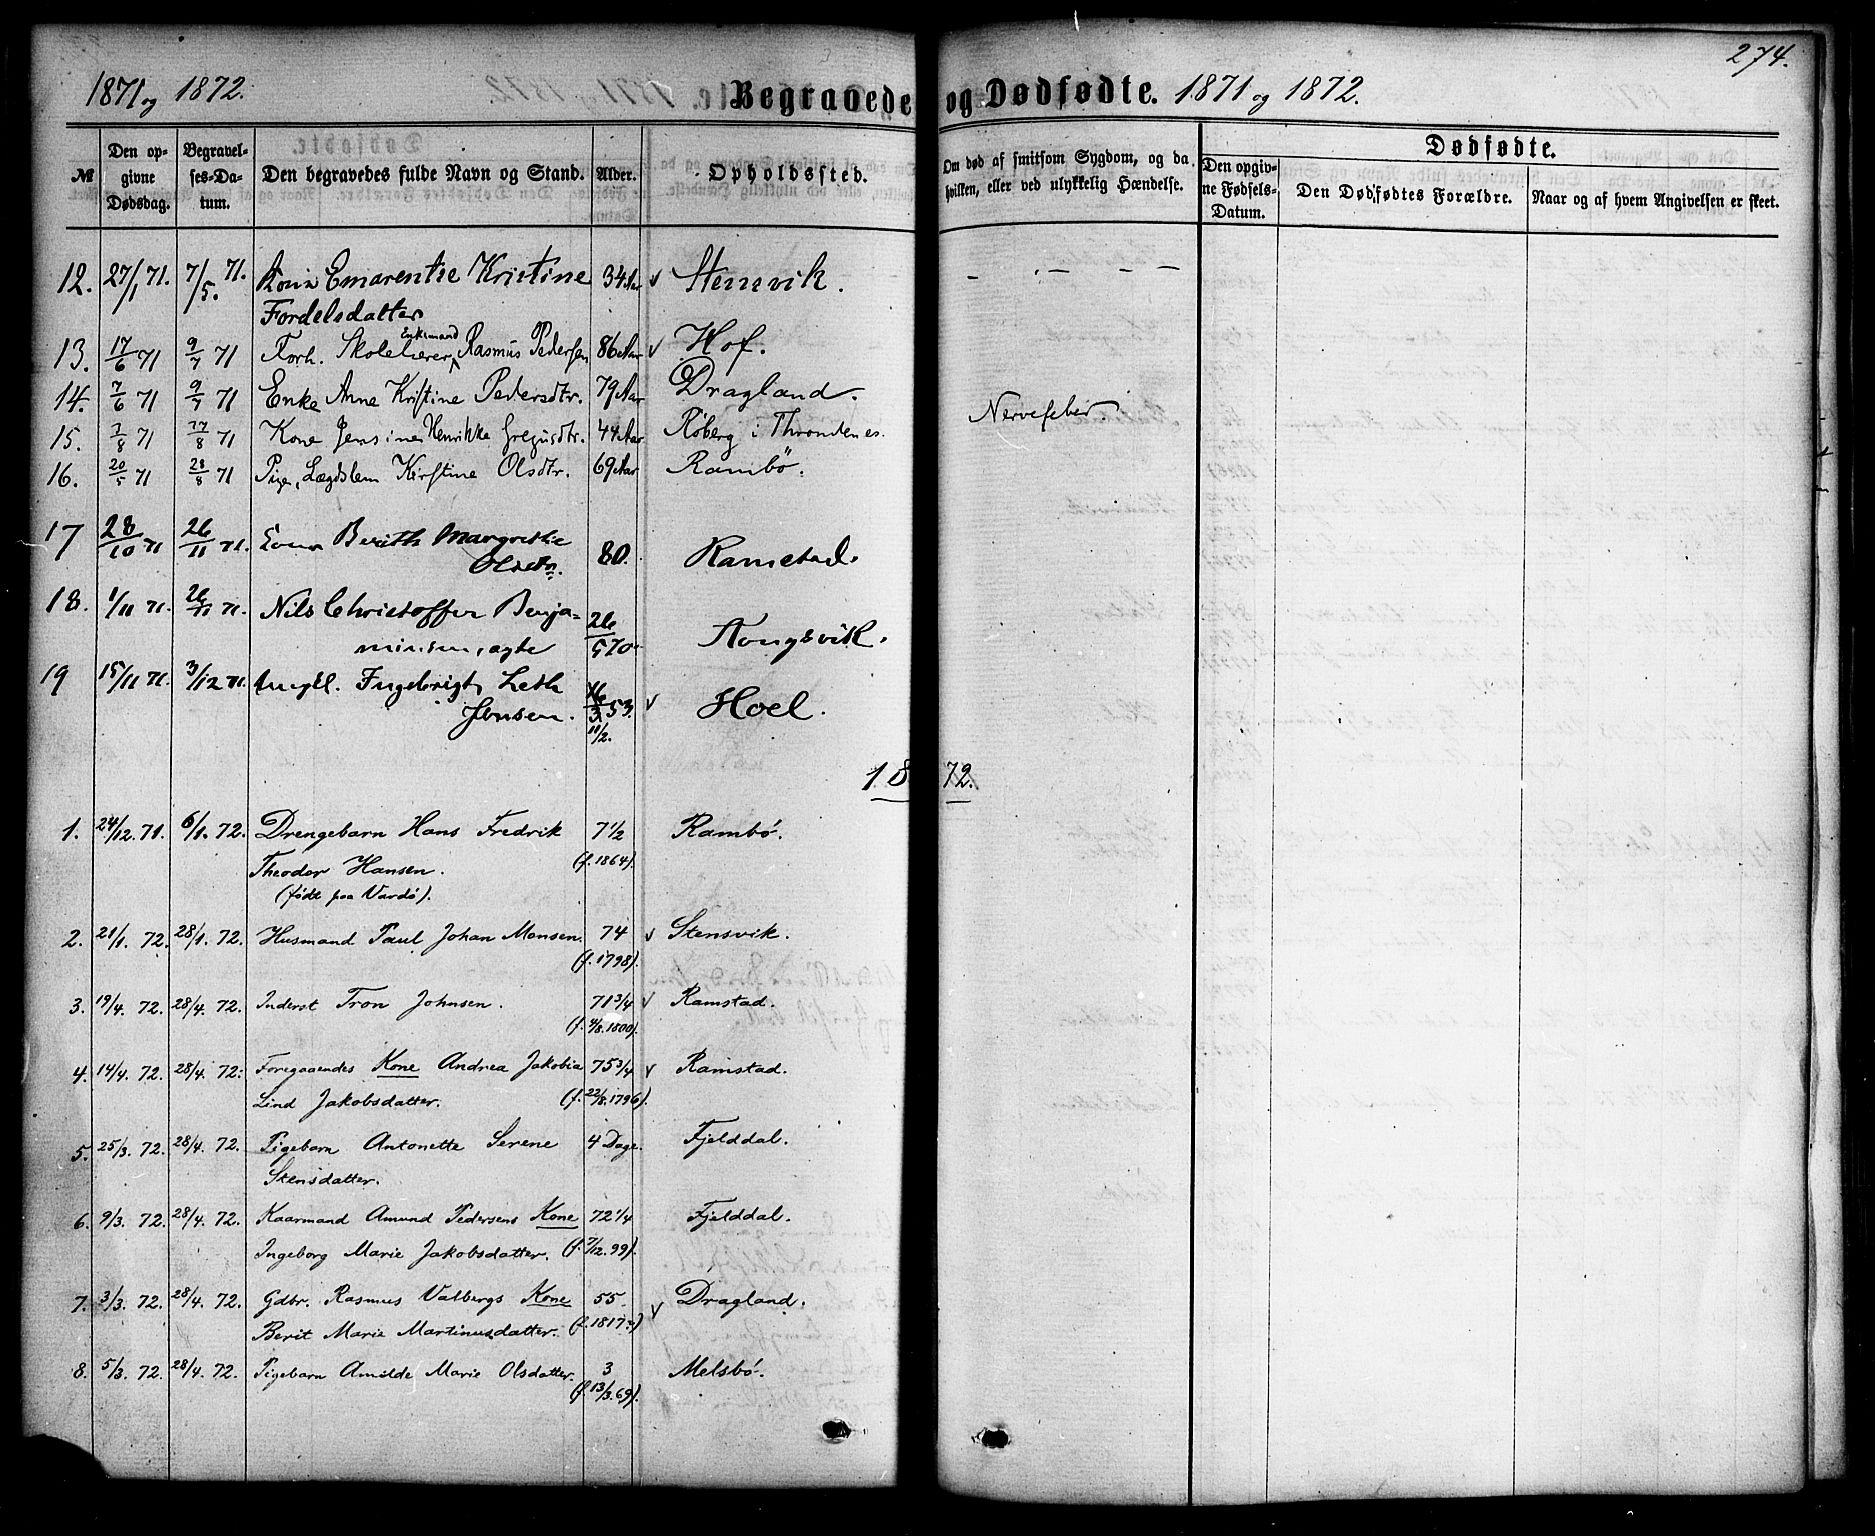 274.
1871 og 1872. Begravede og Dødfødte. 1871 og 1872.
Dødfødte.
№ Den opgivne Dødsdag. Begravelses-Datum. Den begravedes fulde Navn og Stand. Alder. Opholdssted. Om død af smitsom Sygdom, og da hvilken, eller ved ulykkelig Hændelse. Den opgivne Fødsels-Datum. Den Dødfødtes Forældre. Naar og af hvem Angivelsen er skeet.
12. 27/1 71. 7/5. 71. Kone Emarentse Kristine 34 Aar v Stensvik. - - - - -
Fordelsdatter
13. 17/6 71 9/7 71 Forh. Skolelærer, Enkemand Rasmus Pedersen 86 Aar v Hof.
14. 7/6 71 9/7 71 Enke Anne Kristine Pedersdtr. 79 Aar Dragland.
15. 7/8 71 27/8 71 Kone Jensine Henrikke Gregusdtr. 44 Aar Røberg i Throndenes. Nervefeber.
16. 20/5 71 28/8 71 Pige, Lægdslem Kirstine Olsdtr. 69 Aar Rambö.
17 28/10 71 26/11 71. Berith Margrethe 80. Ramstad.
Olsdtr.
18. 1/11 71. 26/11 71. Nils Christoffer Benja-
minsen, ægte 26/5 70. Kongsvik.
19 15/11 71. 3/12 71. Ungkl. Ingebrigt Leth v Hoel.
Jensen. 53. 11/2.
1872.
1. 24/12. 71. 6/1. 72. Drengebarn Hans Fredrik 7 1/2 Rambø.
Theodor Hansen. (f. 1864).
(født paa Vardø).
2. 21/1. 72. 28/1. 72. Husmand Paul Johan Monsen. 74 v Stensvik.
(f. 1798).
3. 19/4. 72. 28/4. 72. Inderst Tron Johnsen. 71 3/4 v Ramstad.
(f. 4/8. 1800).
4. 14/4. 72. 28/4. 72. Foregaaendes Kone Andrea Jakobia 75 3/4 v Ramstad.
Lind Jakobsdatter. (f. 22/8. 1796).
5. 25/3. 72. 28/4. 72. Pigebarn Antonette Serene 4 Dage. Fjelddal.
Stensdatter.
6. 9/3. 72. 28/4. 72. Kaarmand Amund Pedersens Kone 72 1/4 Fjelddal.
Ingeborg Marie Jakobsdatter. (f. 7/12. 99).
7. 3/3. 72. 28/4. 72. Gdbr. Rasmus Valbergs Kone 55. v Dragland.
Berit Marie Martinusdatter. (f. 1817?)
8. 5/3. 72. 28/4. 72. Pigebarn Amilde Marie Olsdatter. 3 Melsbø.
(f. 13/3. 69).